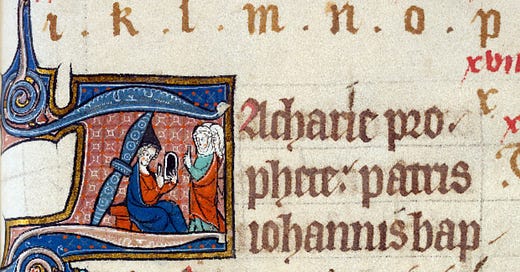 i. k. l. m. n. o. p
xvii
Zacharie pro.
x
phete: patris
iohannis bap